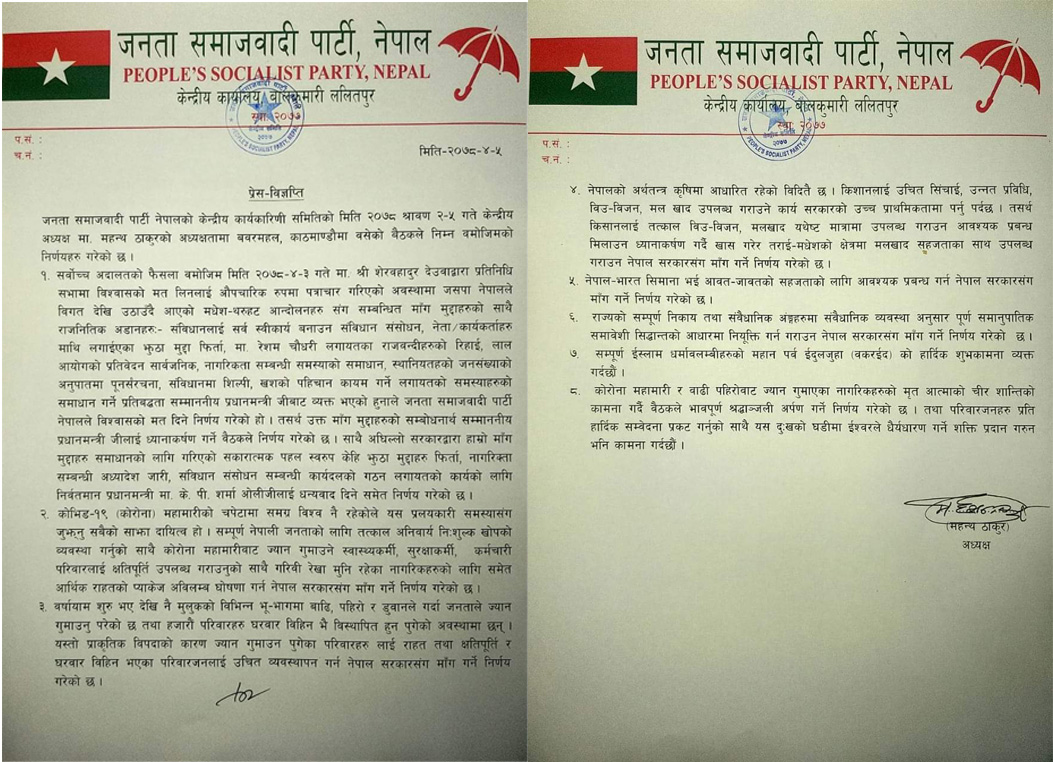 जनता समाजवादी पार्टी, नेपाल
PEOPLE'S SOCIALIST PARTY, NEPAL
केन्द्रीय कार्यालय, बालकुमारी ललितपुर
स्था. २०७७
प.सं. :
च.नं. :
मिति-२०७८-४-५
प्रेस-विज्ञप्ति
जनता समाजवादी पार्टी नेपालको केन्द्रीय कार्यकारिणी समितिको मिति २०७८ श्रावण २-५ गते केन्द्रीय
अध्यक्ष मा. महन्थ ठाकुरको अध्यक्षतामा बवरमहल, काठमाण्डौमा वसेको बैठकले निम्न वमोजिमको
निर्णयहरु गरेको छ ।
१. सर्वोच्च अदालतको फैसला वमोजिम मिति २०७८-४-३ गते मा. श्री शेरवहादुर देउवाद्वारा प्रतिनिधि
सभामा विश्वासको मत लिनलाई औपचारिक रुपमा पत्राचार गरिएको अवस्थामा जसपा नेपालले
विगत देखि उठाउँदै आएको मधेश-थरुहट आन्दोलनहरु संग सम्बन्धित माँग मुद्दाहरुको साथै
राजनितिक अडानहरु:- संविधानलाई सर्व स्वीकार्य बनाउन संविधान संसोधन, नेता/कार्यकर्ताहरु
माथि लगाईएका झुठा मुद्दा फिर्ता, मा. रेशम चौधरी लगायतका राजवन्दीहरुको रिहाई, लाल
आयोगको प्रतिवेदन सार्वजनिक, नागरिकता सम्बन्धी समस्याको समाधान, स्थानियतहको जनसंख्याको
अनुपातमा पूनर्संरचना, संविधानमा शिल्पी, खशको पहिचान कायम गर्ने लगायतको समस्याहरुको
समाधान गर्ने प्रतिबद्धता सम्माननीय प्रधानमन्त्री जीबाट व्यक्त भएको हुनाले जनता समाजवादी पार्टी
नेपालले विश्वासको मत दिने निर्णय गरेको हो । तसर्थ उक्त माँग मुद्दाहरुको सम्बोधनार्थ सम्माननीय
प्रधानमन्त्री जीलाई ध्यानाकर्षण गर्ने बैठकले निर्णय गरेको छ । साथै अघिल्लो सरकारद्वारा हाम्रो माँग
मुद्दाहरु समाधानको लागि गरिएको सकारात्मक पहल स्वरुप केहि झुठा मुद्दाहरु फिर्ता, नागरिक्ता
सम्बन्धी अध्यादेश जारी, संविधान संसोधन सम्बन्धी कार्यदलको गठन लगायतको कार्यको लागि
निर्वतमान प्रधानमन्त्री मा. के. पी. शर्मा ओलीजीलाई धन्यवाद दिने समेत निर्णय गरेको छ ।
२. कोभिड-१९ (कोरोना) महामारीको चपेटामा समग्र विश्व नै रहेकोले यस प्रलयकारी समस्यासंग
जुझ्नु सबैको साझा दायित्व हो । सम्पूर्ण नेपाली जनताको लागि तत्काल अनिवार्य नि:शुल्क खोपको
व्यवस्था गर्नुको साथै कोरोना महामारीबाट ज्यान गुमाउने स्वास्थ्यकर्मी, सुरक्षाकर्मी, कर्मचारी
परिवारलाई क्षतिपूर्ति उपलब्ध गराउनुको साथै गरिवी रेखा मुनि रहेका नागरिकहरुको लागि समेत
आर्थिक राहतको प्याकेज अविलम्ब घोषणा गर्न नेपाल सरकारसंग माँग गर्ने निर्णय गरेको छ ।
३. वर्षायाम शुरु भए देखि नै मुलुकको विभिन्न भू-भागमा बाढि, पहिरो र डुवानले गर्दा जनताले ज्यान
गुमाउनु परेको छ तथा हजारौं परिवारहरु घरवार विहिन भै विस्थापित हुन पुगेको अवस्थामा छन् ।
यस्तो प्राकृतिक विपदाको कारण ज्यान गुमाउन पुगेका परिवारहरु लाई राहत तथा क्षतिपूर्ति र
घरवार विहिन भएका परिवारजनलाई उचित व्यवस्थापन गर्न नेपाल सरकारसंग माँग गर्ने निर्णय
गरेको छ ।
जनता समाजवादी पार्टी, नेपाल
PEOPLE'S SOCIALIST PARTY, NEPAL
केन्द्रीय कार्यालय, बालकुमारी ललितपुर
स्था. २०७७
प.सं. :
च.नं. :
४. नेपालको अर्थतन्त्र कृषिमा आधारित रहेको विदितै छ । किशानलाई उचित सिंचाई, उन्नत प्रविधि,
विउ-विजन, मल खाद उपलब्ध गराउने कार्य सरकारको उच्च प्राथमिकतामा पर्नु पर्दछ । तसर्थ
किसानलाई तत्काल विउ-विजन, मलखाद यथेष्ट मात्रामा उपलब्ध गराउन आवश्यक प्रबन्ध
मिलाउन ध्यानाकर्षण गर्दै खास गरेर तराई-मधेशको क्षेत्रमा मलखाद सहजताका साथ उपलब्ध
गराउन नेपाल सरकारसंग माँग गर्ने निर्णय गरेको छ ।
५. नेपाल-भारत सिमाना भई आवत-जावतको सहजताको लागि आवश्यक प्रबन्ध गर्न नेपाल सरकारसंग
माँग गर्ने निर्णय गरेको छ ।
६. राज्यको सम्पूर्ण निकाय तथा संवैधानिक अंङ्गहरुमा संवैधानिक व्यवस्था अनुसार पूर्ण समानुपातिक
समावेशी सिद्धान्तको आधारमा नियूक्ति गर्न गराउन नेपाल सरकारसंग माँग गर्ने निर्णय गरेको छ ।
७. सम्पूर्ण ईस्लाम धर्मावलम्बीहरुको महान पर्व ईदुलजुहा (वकरईद) को हार्दिक शुभकामना व्यक्त
गर्दछौं ।
८. कोरोना महामारी र वाढी पहिरोबाट ज्यान गुमाएका नागरिकहरुको मृत आत्माको चीर शान्तिको
कामना गर्दै बैठकले भावपूर्ण श्रद्धाञ्जली अर्पण गर्ने निर्णय गरेको छ । तथा परिवारजनहरु प्रति
हार्दिक सम्वेदना प्रकट गर्नुको साथै यस दु:खको घडीमा ईश्वरले धैर्यधारण गर्ने शक्ति प्रदान गरुन
भनि कामना गर्दछौं ।
(महन्थ ठाकुर)
अध्यक्ष